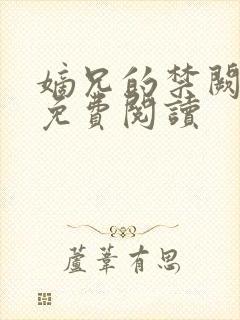 嫡兄的禁闕
免費閱讀
蘆葦有思